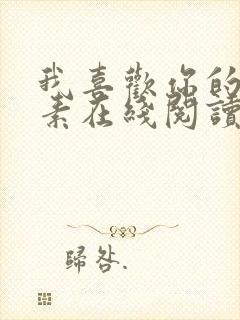 我喜歡你的
素在綫閱讀
歸咎.